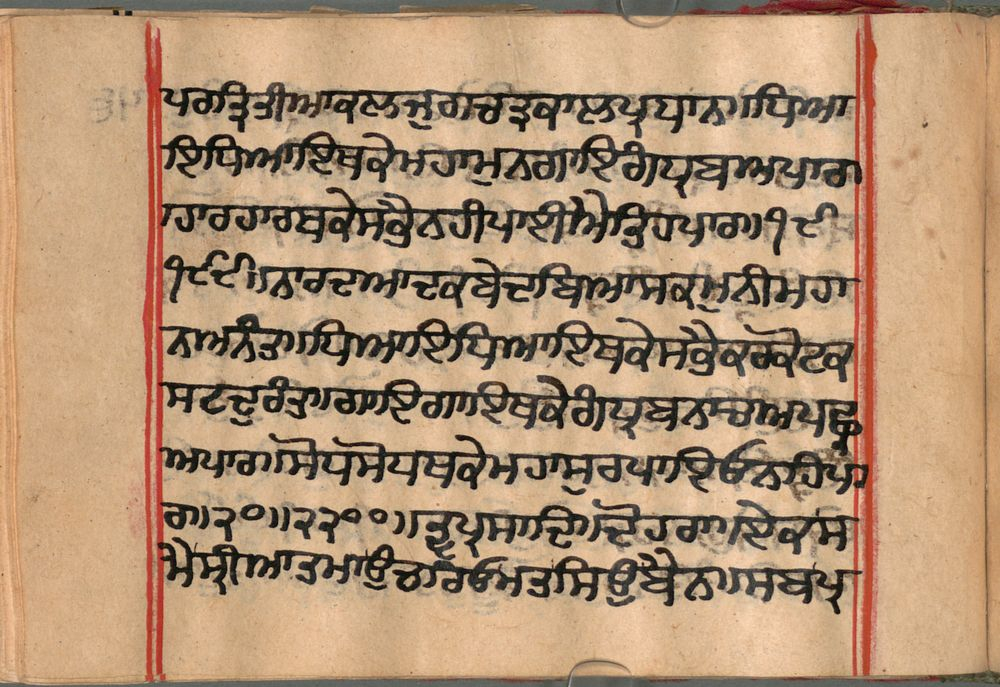 ਪਰਾਤ੍ਰਿਤੀਆਕਲਜੁਗਚਤ੍ਰਕਾਲਪ੍ਰਧਾਨ॥ਧਿਆ
ਇਧਿਆਇਥਕੇਮਹਾਮੁਨਗਾਇਗੰਧ੍ਰਬਅਪਾਰ
॥ਹਾਰਹਾਰਥਕੇਸਭੈਨਹੀਪਾਈਐਤਿਹਪਾਰ॥੧੯
੧੯੯॥ਨਾਰਦਆਦਕਬੇਦਬਿਆਸਕਮੁਨੀਮਹਾ
ਨਅਨੰਤ॥ਧਿਆਇਧਿਆਇਥਕੇਸਭੈਕਰਕੋਟਕ
ਸਟਦੁਰੰਤ॥ਗਾਇਗਾਇਥਕੇਗੰਧ੍ਰਬਨਾਚਅਪਛ੍ਰ
ਅਪਾਰ॥ਸੋਧਸੋਧਥਕੇਮਹਾਸੁਰਪਾਇਓਨਹਿਪਾ
ਰ॥੨੦॥੨੨੦੦॥ਤ੍ਵਪ੍ਰਸਾਦਿ॥ਦੋਹਰਾ॥ਏਕਸ
ਮੇਸ੍ਰੀਆਤਮਾਉਚਰਿਓਮਤਸਿਉਬੈਨ॥ਸਬਪ੍ਰ